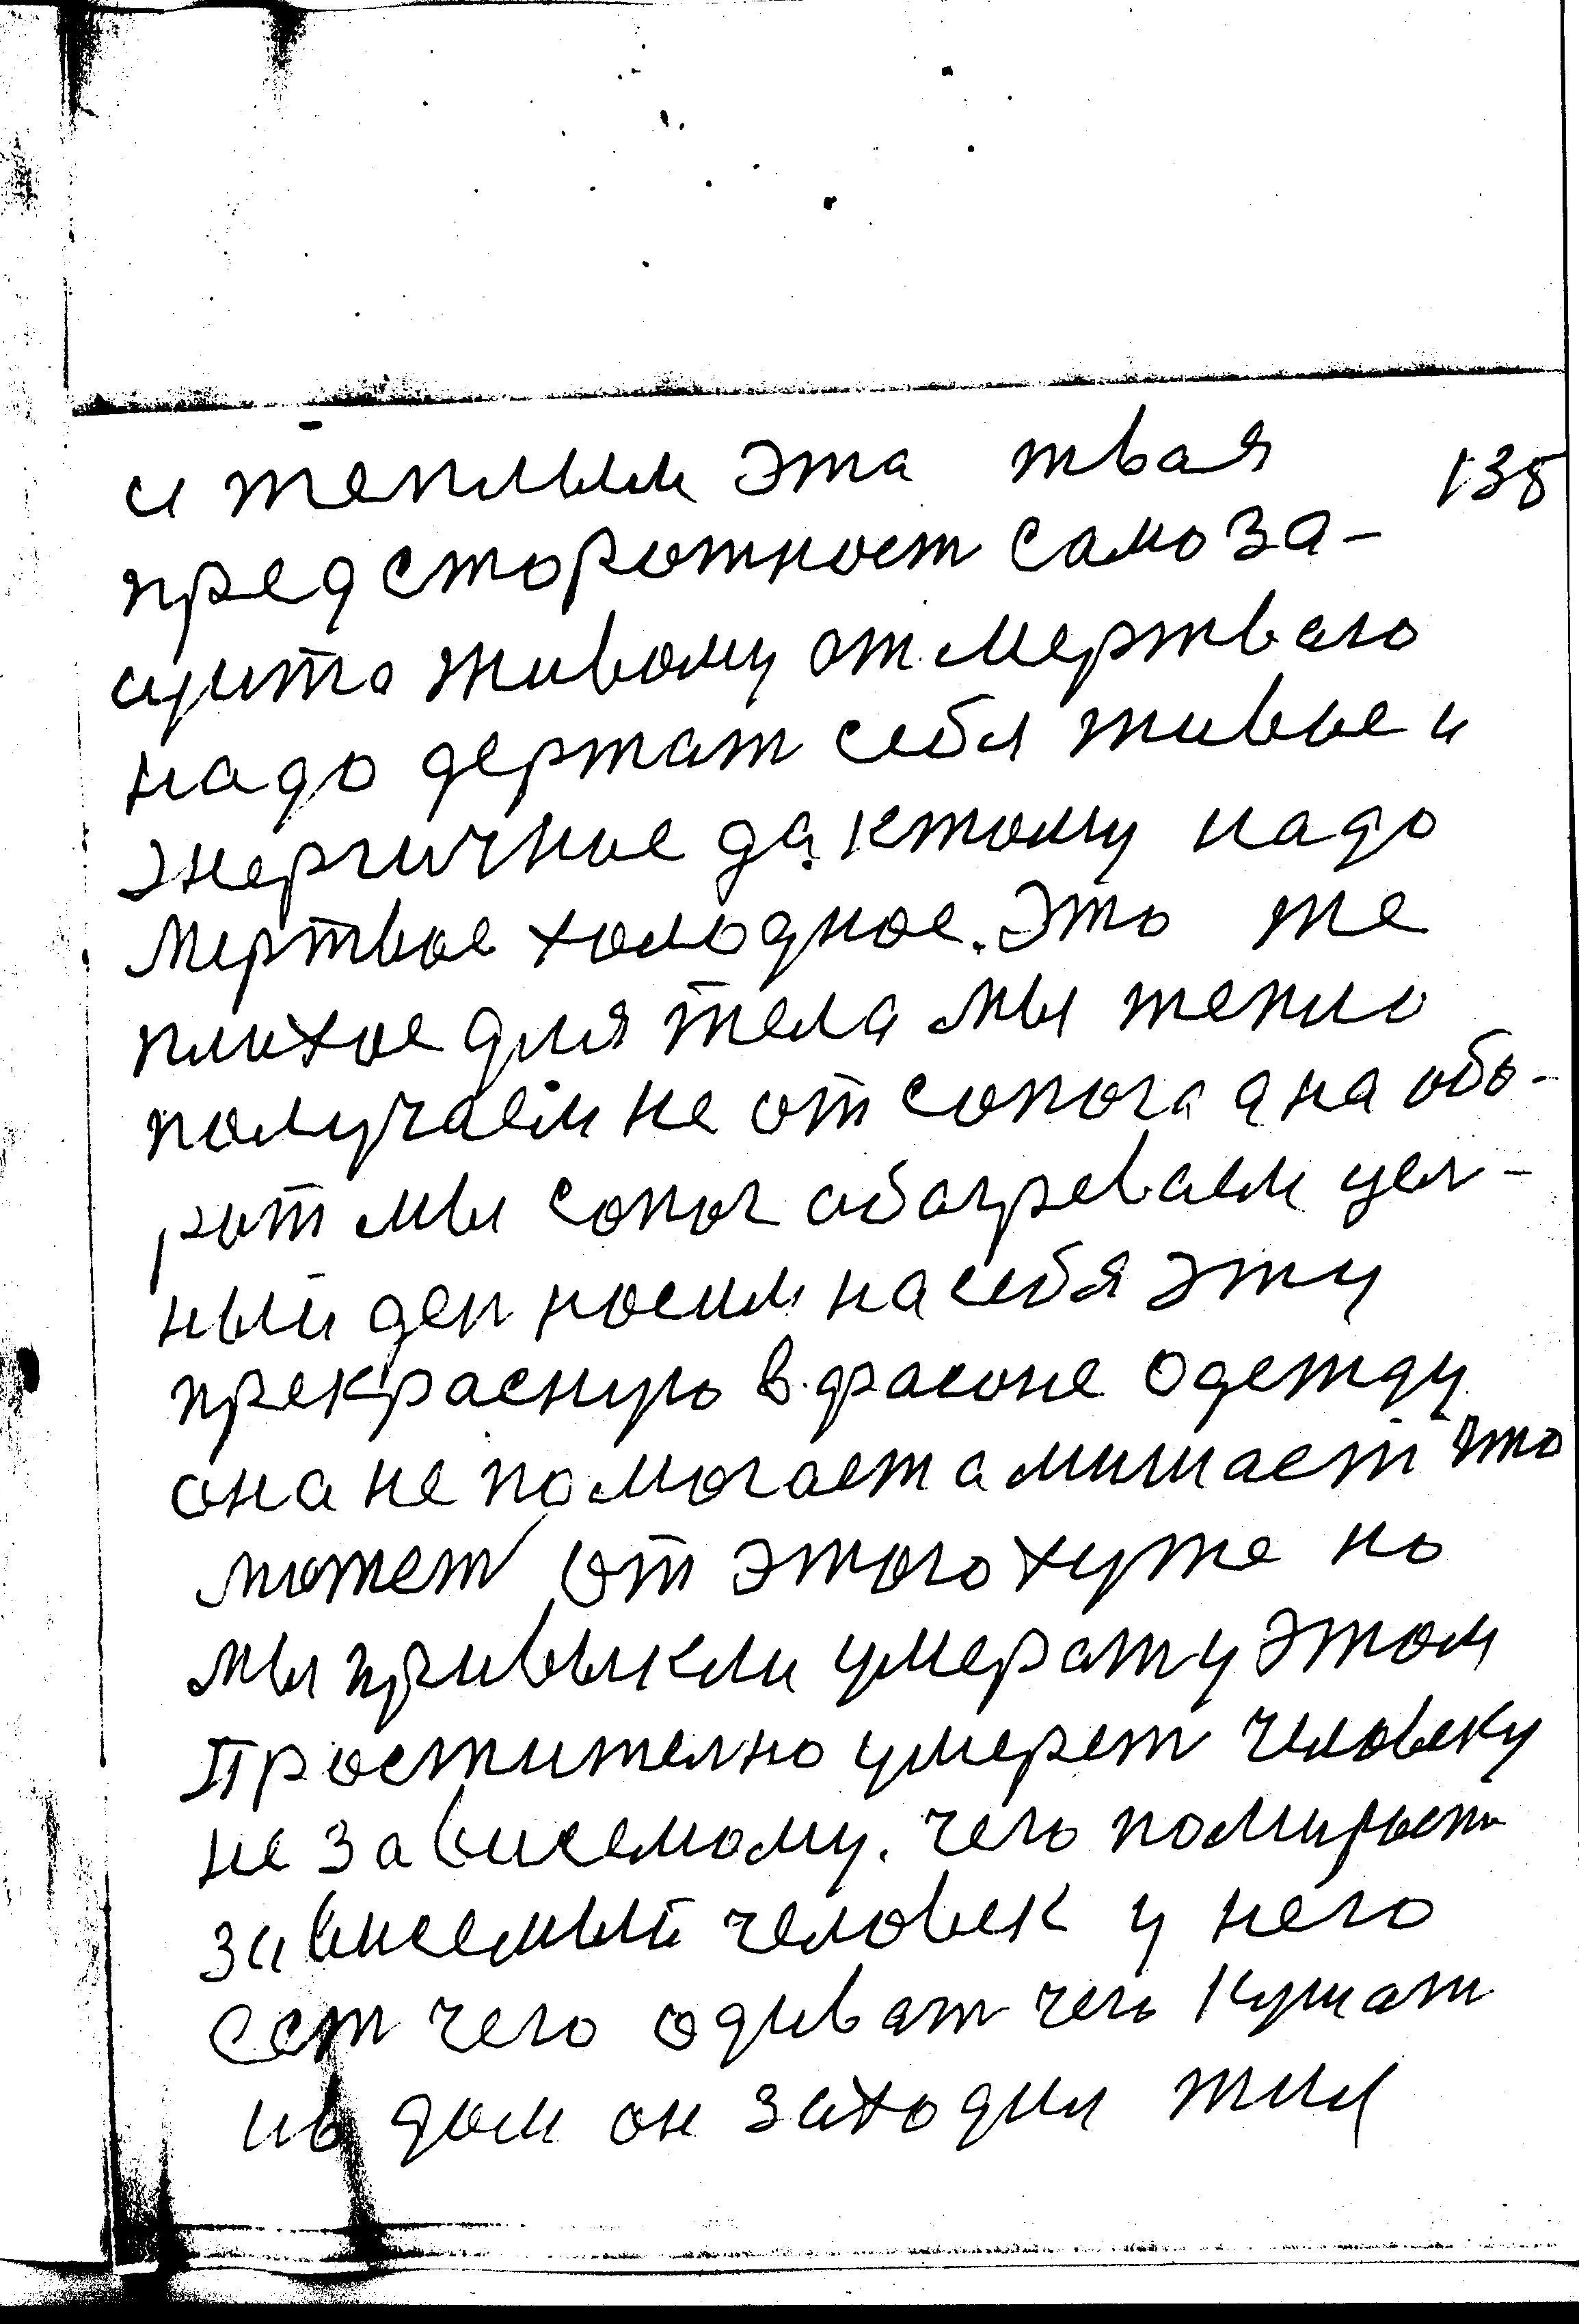 и теплым эта твая 138
предсторожност самоза-
щита живому от мертваго
надо держат себя живое и
энергичное да ктому надо
мертвое холодное. Это же
плихое для тела мы тепло
получаем не от сопога а на обо-
рот мы сопог абагреваем цел-
ный ден носим на себя эту
прекрасную в фасоне одежду
она не помогает а мишает что
может от этого хуже но
мы привыкли умерат у этом
Простително умерет человеку
не зависемому. чего помирает
зависемый человек у него
ест чего одиват чего кушат
ив дом он заходил жил